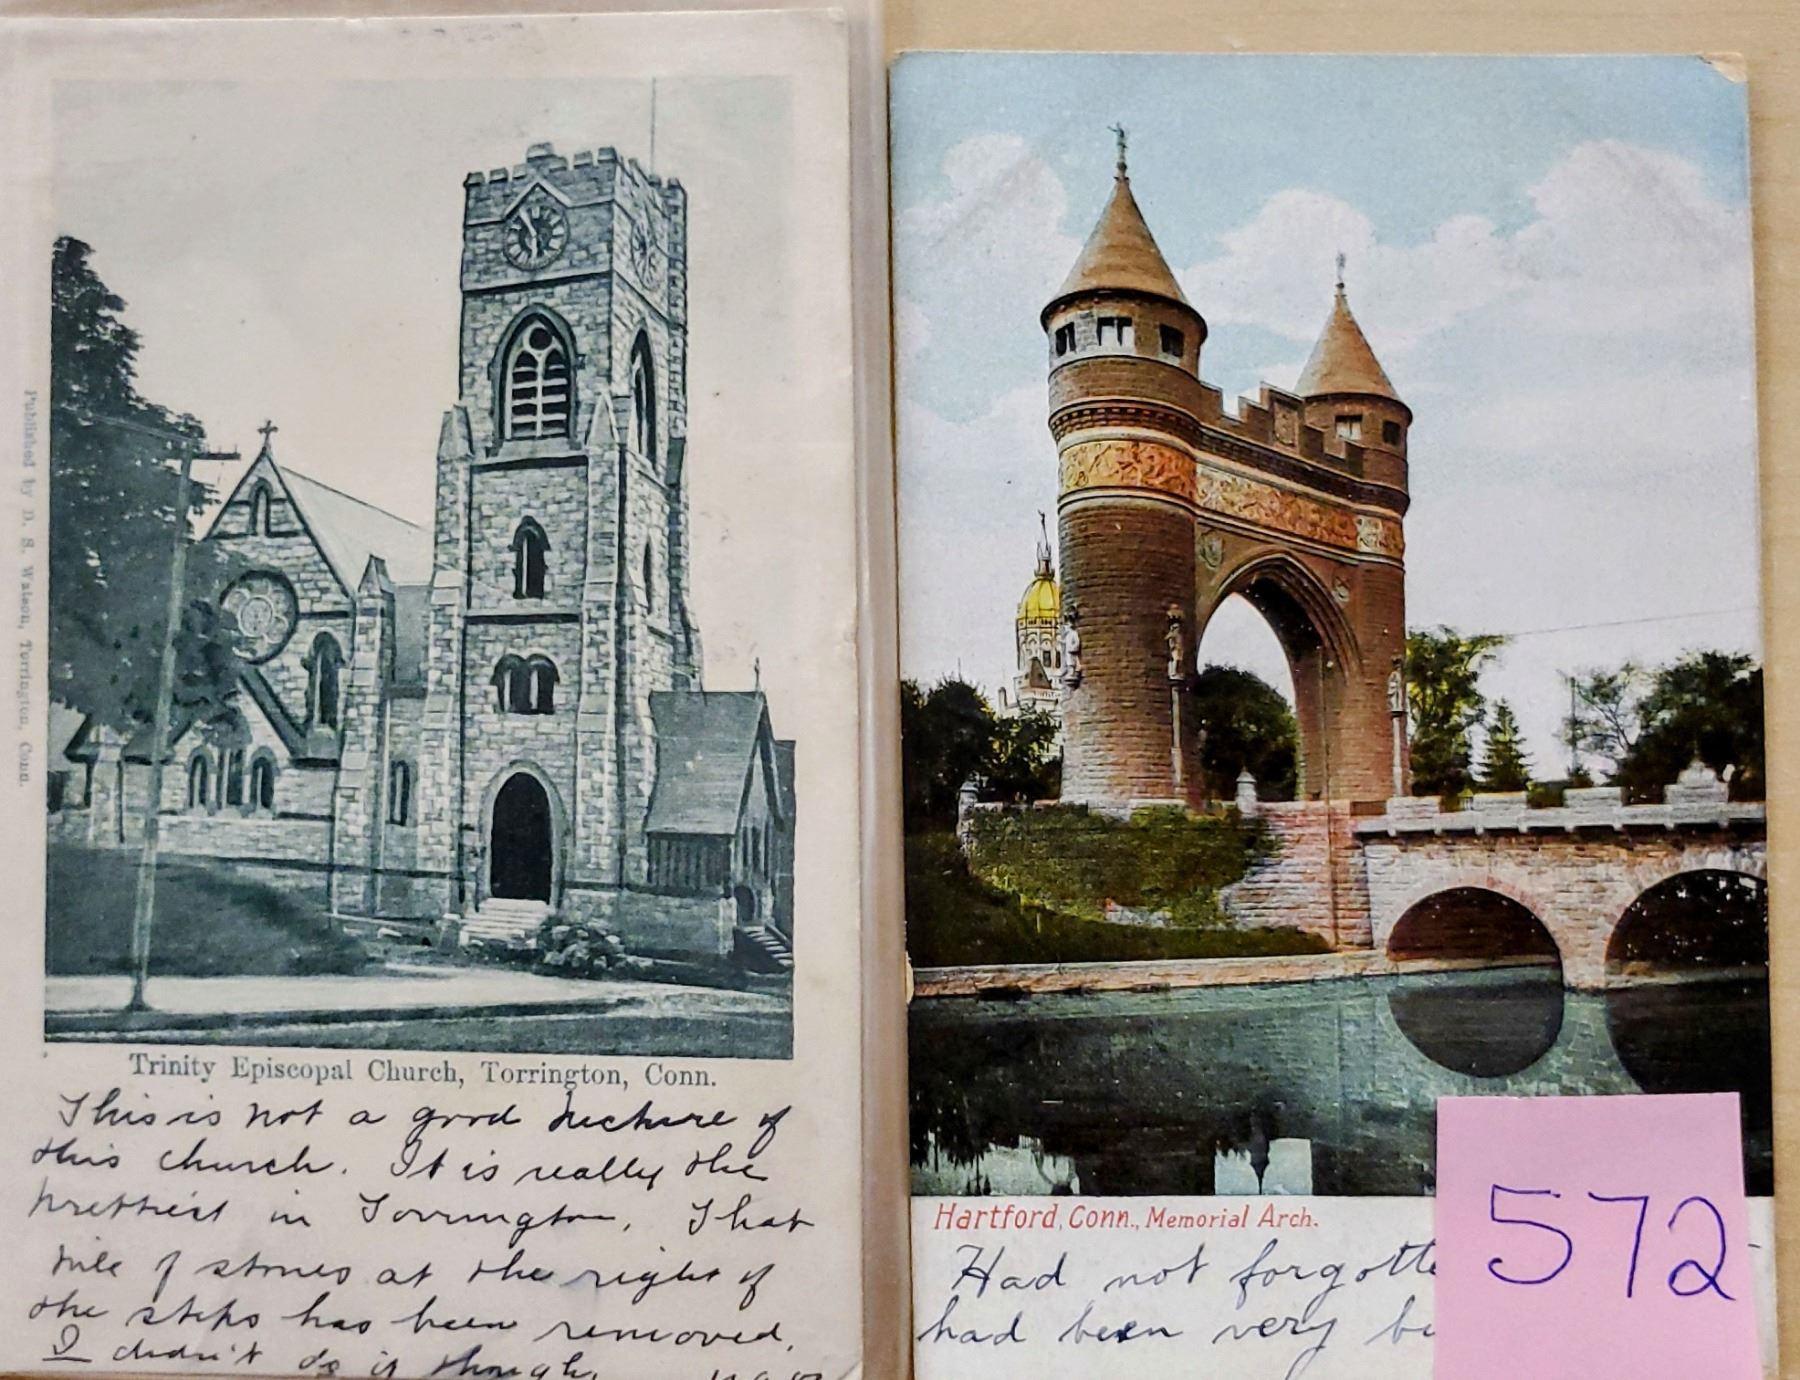 Published by D. S. Watson, Torrington, Conn.
Trinity Episcopal Church, Torrington, Conn.
This is not a good picture of
this church. It is really the
prettiest in Torrington. That
pile of stones at the right of
the steps has been removed.
I didn't do it though.
Hartford, Conn., Memorial Arch.
Had not forgotte
had been very b
572